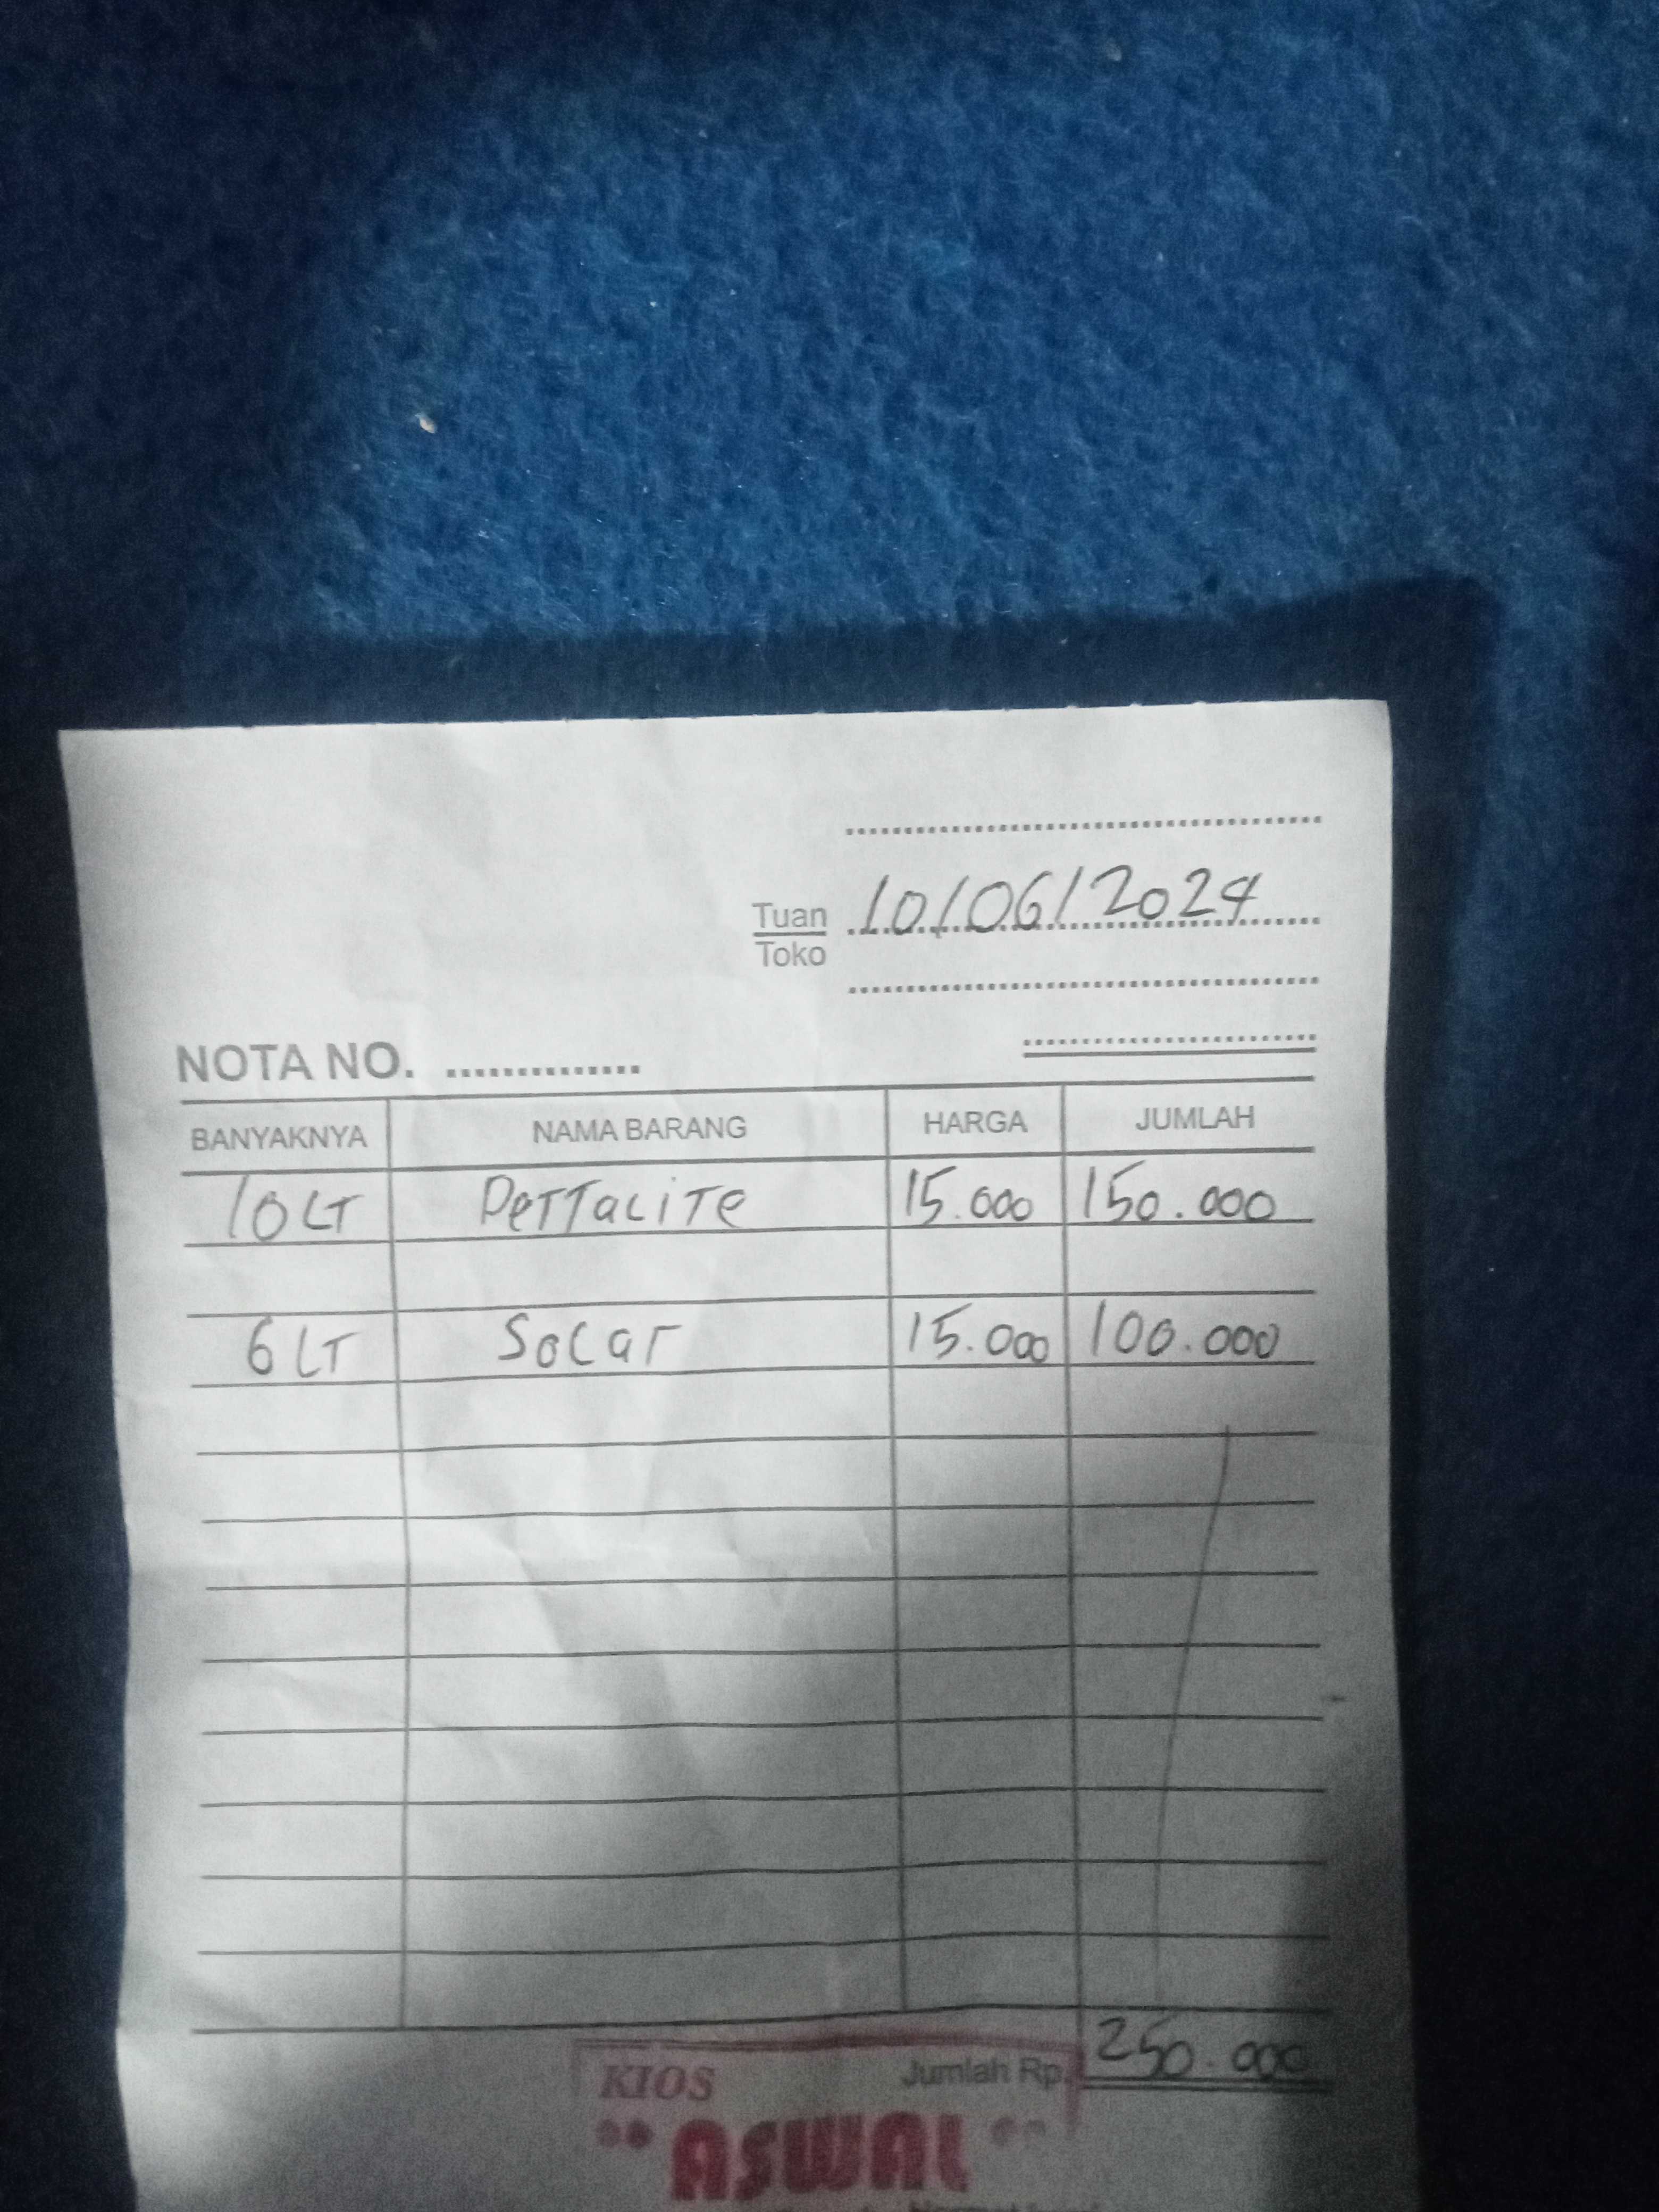 Tuan
Toko
10/06/2024
NOTA NO. ..............
BANYAKNYA NAMA BARANG HARGA JUMLAH
10 LT PerTaLiTe 15.000 150.000
6 LT SoLar 15.000 100.000
Jumlah Rp. 250.000
KIOS
"ASWAL"